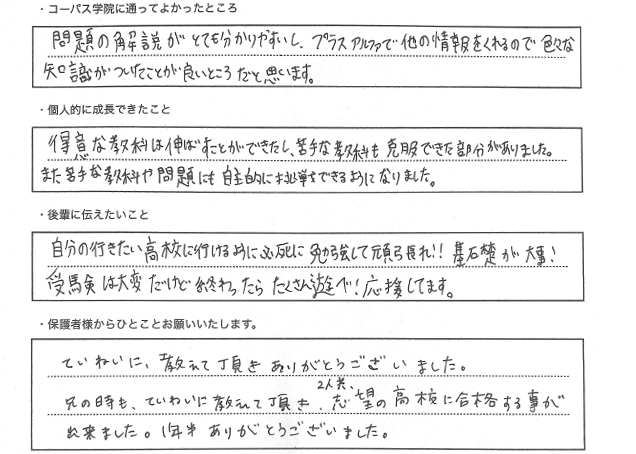 ・コーパス学院に通ってよかったところ
問題の解説がとても分かりやすいし、プラスアルファで他の情報をくれるので色々な
知識がつけたことが良いところだと思います。
・個人的に成長できたこと
得意な教科は伸ばすことができたし、苦手な教科も克服できた部分がありました。
また苦手な教科や問題にも自主的に挑戦できるようになりました。
・後輩に伝えたいこと
自分の行きたい高校に行けるように必死に勉強して頑張れ!! 基礎が大事!
受験は大変だけど終わったらたくさん遊べ! 応援してます。
・保護者様からひとことお願いいたします。
ていねいに、教えて頂きありがとうございました。
2人共、
兄の時も、ていねいに教えて頂き、志望の高校に合格する事が
出来ました。1年半ありがとうございました。